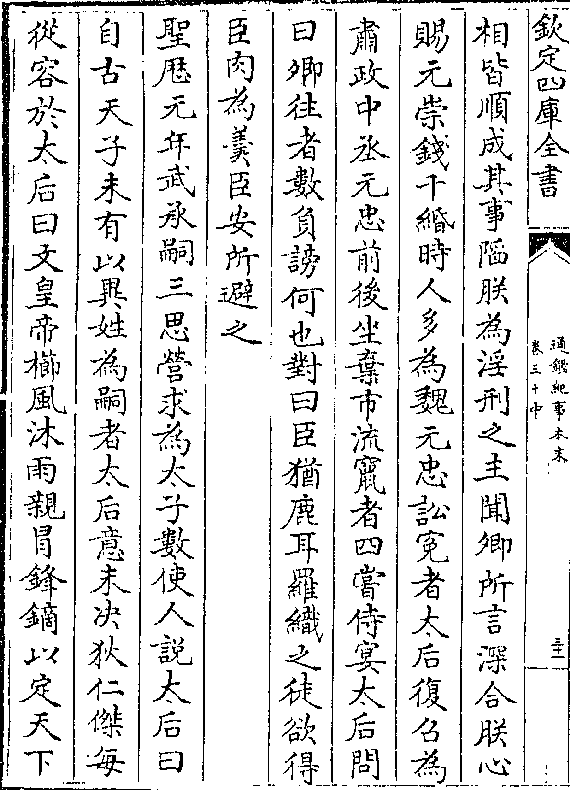 欽定四庫全書
通鑑紀事本末
卷三十中
相皆順成其事陥朕為淫刑之主聞卿所言深合朕心
賜元崇錢千緡時人多為魏元忠訟寃者太后復召為
肅政中丞元忠前後坐棄市流竄者四嘗侍宴太后問
曰卿往者數負謗何也對曰臣猶鹿耳羅織之徒欲得
臣肉為羮臣安所避之
聖厯元年武承嗣三思營求為太子數使人説太后曰
自古天子未有以異姓為嗣者太后意未决狄仁傑每
從容於太后曰文皇帝櫛風沐雨親冒鋒鏑以定天下